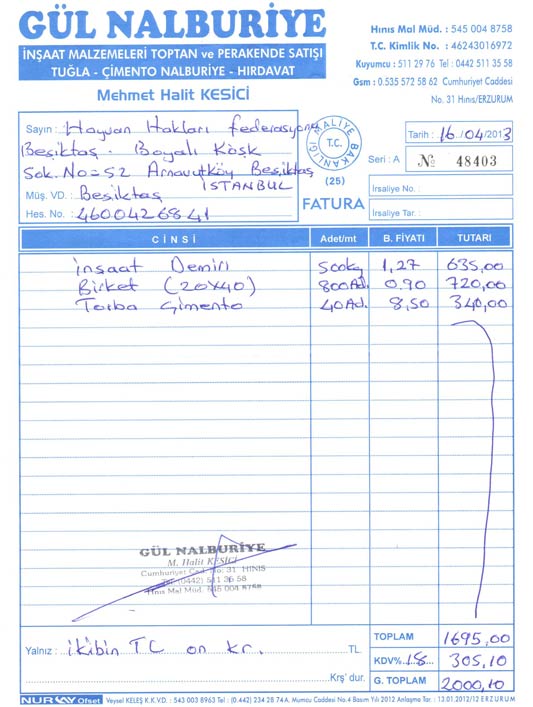 GÜL NALBURİYE
İNŞAAT MALZEMELERİ TOPTAN ve PERAKENDE SATIŞI
TUĞLA - ÇİMENTO NALBURİYE - HIRDAVAT
Mehmet Halit KESİCİ
Hınıs Mal Müd. : 545 004 8758
T.C. Kimlik No. : 46243016972
Kuyumcu : 511 29 76 Tel : 0442 511 35 58
Gsm : 0.535 572 58 62 Cumhuriyet Caddesi
No. 31 Hınıs/ERZURUM
Sayın : Hayvan Hakları federasyonu
Beşiktaş - Boyalı Köşk
Sok. No=52 Arnavutköy Beşiktaş
İSTANBUL
Müş. VD. : Beşiktaş
Hes. No. : 4600426841
MALİYE BAKANLIĞI
T.C.
(25)
FATURA
Tarih : 16/04/2013
Seri : A No 48403
İrsaliye No. :
İrsaliye Tar. :
CİNSİ Adet/mt B. FİYATI TUTARI
inşaat Demiri 500kg 1,27 635,00
Birket (20x40) 800Ad. 0.90 720,00
Torba Çimento 40Ad. 8,50 340,00
GÜL NALBURİYE
M. Halit KESİCİ
Cumhuriyet Cad. No: 31 HINIS
Tel: (0442) 511 35 58
Hınıs Mal Müd. 545 004 8758
Yalnız : ikibin TC on kr. TL.
Krş' dur.
TOPLAM 1695,00
KDV% 18 305,10
G. TOPLAM 2000,10
NURAY Ofset Veysel KELEŞ K.K.V.D. : 543 003 8963 Tel : (0.442) 234 28 74 A. Mumcu Caddesi No.4 Basım Yılı 2012 Anlaşma Tar. : 13.01.2012/12 ERZURUM